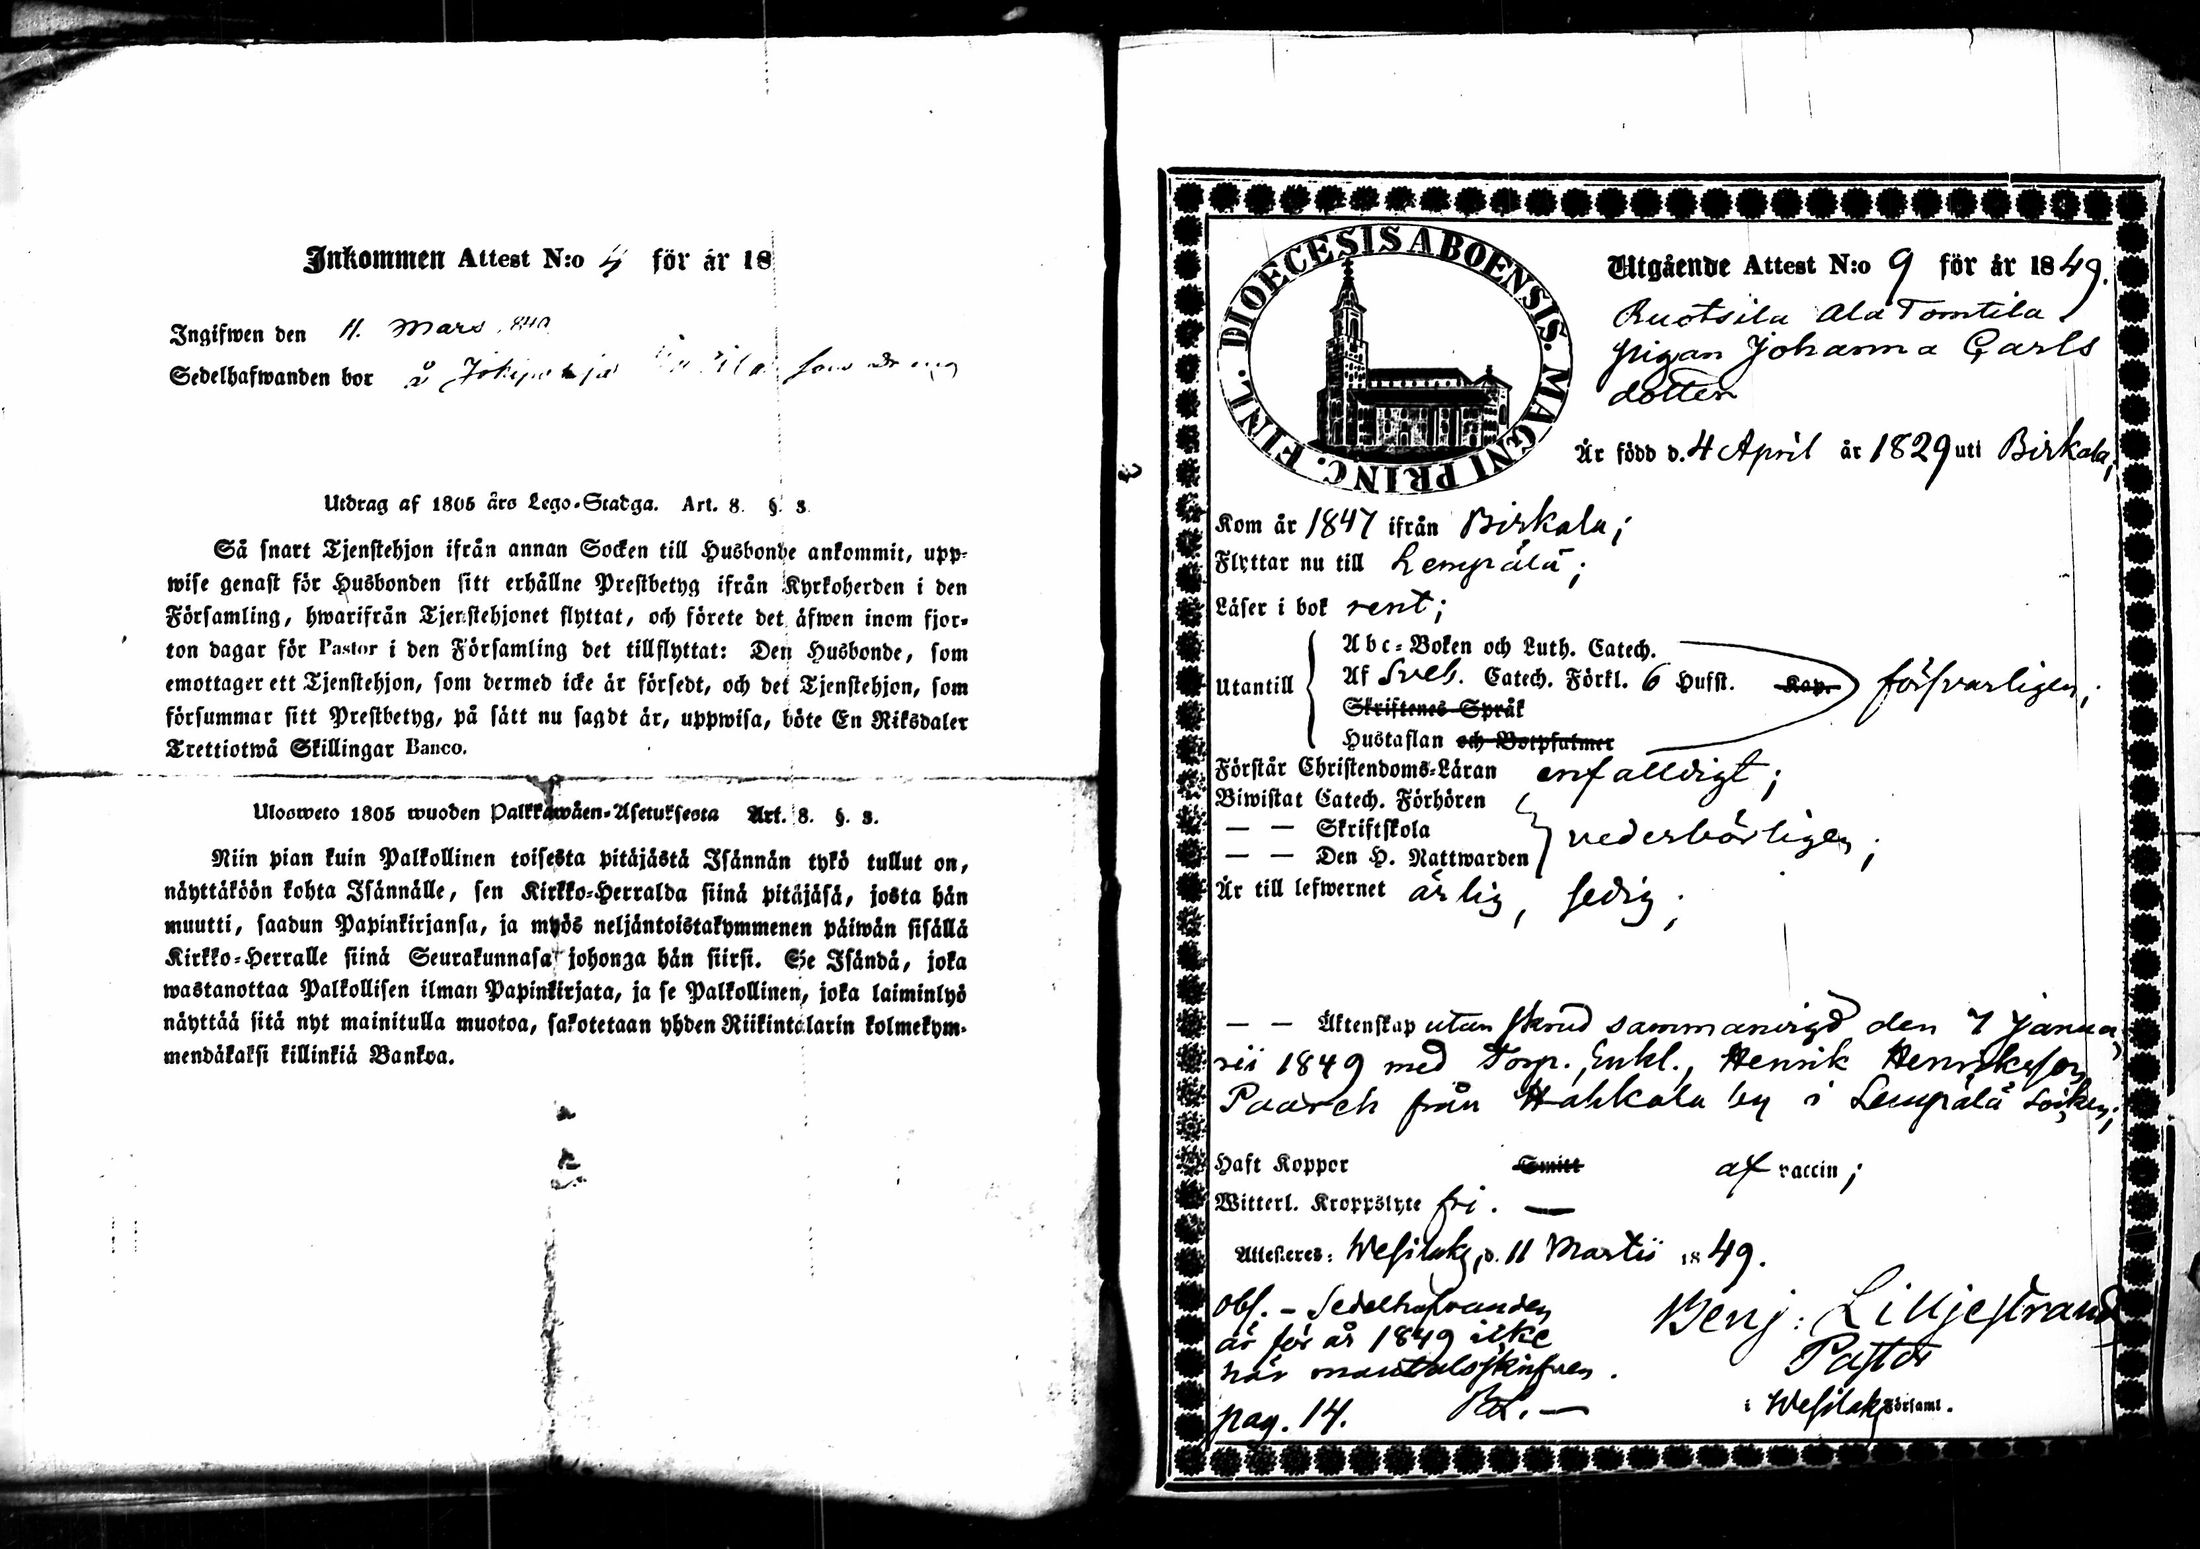 Inkommen Attest N:o 4 för år 18
Ingifwen den 11. Mars
Sedelhafwanden bor å
Utdrag af 1805 års Lego-Stadga. Art. 8. §. 3.
Så snart Tjenstehjon ifrån annan Socken till Husbonde ankommit, upp-
wise genast för Husbonden sitt erhållne Prestbetyg ifrån Kyrkoherden i den
Församling, hwarifrån Tjenstehjonet flyttat, och förete det äfwen inom fjor-
ton dagar för Pastor i den Församling det tillflyttat: Den Husbonde, som
emottager ett Tjenstehjon, som dermed icke är försedt, och det Tjenstehjon, som
försummar sitt Prestbetyg, på sätt nu sagdt är, uppwisa, böte En Riksdaler
Trettiotwå Skillingar Banco.
Ulosweto 1805 wuoden Palkkawäen-Asetuksesta Art. 8. §. 3.
Niin pian kuin Palkollinen toisesta pitäjästä Isännän tykö tullut on,
näyttäköön kohta Isännälle, sen Kirkko-Herralda siinä pitäjäsä, josta hän
muutti, saadun Papinkirjansa, ja myös neljäntoistakymmenen päiwän sisällä
Kirkko-Herralle siinä Seurakunnasa johonga hän siirsi. Se Isändä, joka
wastanottaa Palkollisen ilman Papinkirjata, ja se Palkollinen, joka laiminlyö
näyttää sitä nyt mainitulla muotoa, sakotetaan yhden Riikintalarin kolmekym-
mendäkaksi killinkiä Bankoa.
DIOECESIS ABOENSIS. MAGNI PRINC. FINL.
Utgående Attest N:o 9 för år 1849.
Ruotsila Ala Tomtila
pigan Johanna Carls
dotter
Är född d. 4 April år 1829 uti Birkala;
Kom år 1847 ifrån Birkala;
Flyttar nu till Lempälä;
Läser i bok rent;
Utantill
Abc-Boken och Luth. Catech.
Af Sveb. Catech. Förkl. 6 Hufst. Kap. försvarligen;
Skriftenes Språk
Hustaflan och Botpsalmer
Förstår Christendoms-Läran enfalldigt;
Biwistat Catech. Förhören
— — Skriftskola vederbörligen;
— — Den H. Nattwarden
Är till lefwernet ärlig, sedig;
— — Äktenskap utan skrud sammanvigd den 7 Janua
rii 1849 med Torp. Enkl., Henrik Henriksson
Paarch från Hahkala by i Lempälä Socken;
Haft Koppor Smitt af vaccin;
Witterl. Kroppslyte fri. —
Attesteres: Wesilaks, d. 11 Martii 1849.
Obs. - Sedelhafvanden
är för år 1849 icke
här mantalsskrifven.
pag. 14. BL. —
Benj: Liljestrand
Pastor
i Wesilaks Församl.